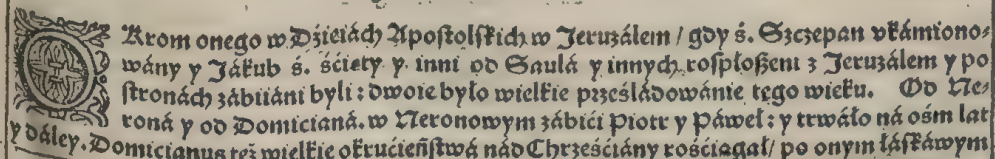 OKrom onego w Dźieiách Apostolskich w Jeruzálem / gdy ś. Szczepan vkámiono-
wány y Jákub ś. śćięty y inni od Saulá y innych rosploszeni z Jeruzálem y po
stronách zábiiáni byli : dwoie było wielkie prześládowánie tego wieku. Od Ne-
roná y od Domicianá. w Neronowym zábići Piotr y Páweł : y trwáło ná ośm lat
y dáley. Domicianus też wielkie okrućieństwá nád Chrześćiány rośćiągał / po onym łáskáwym